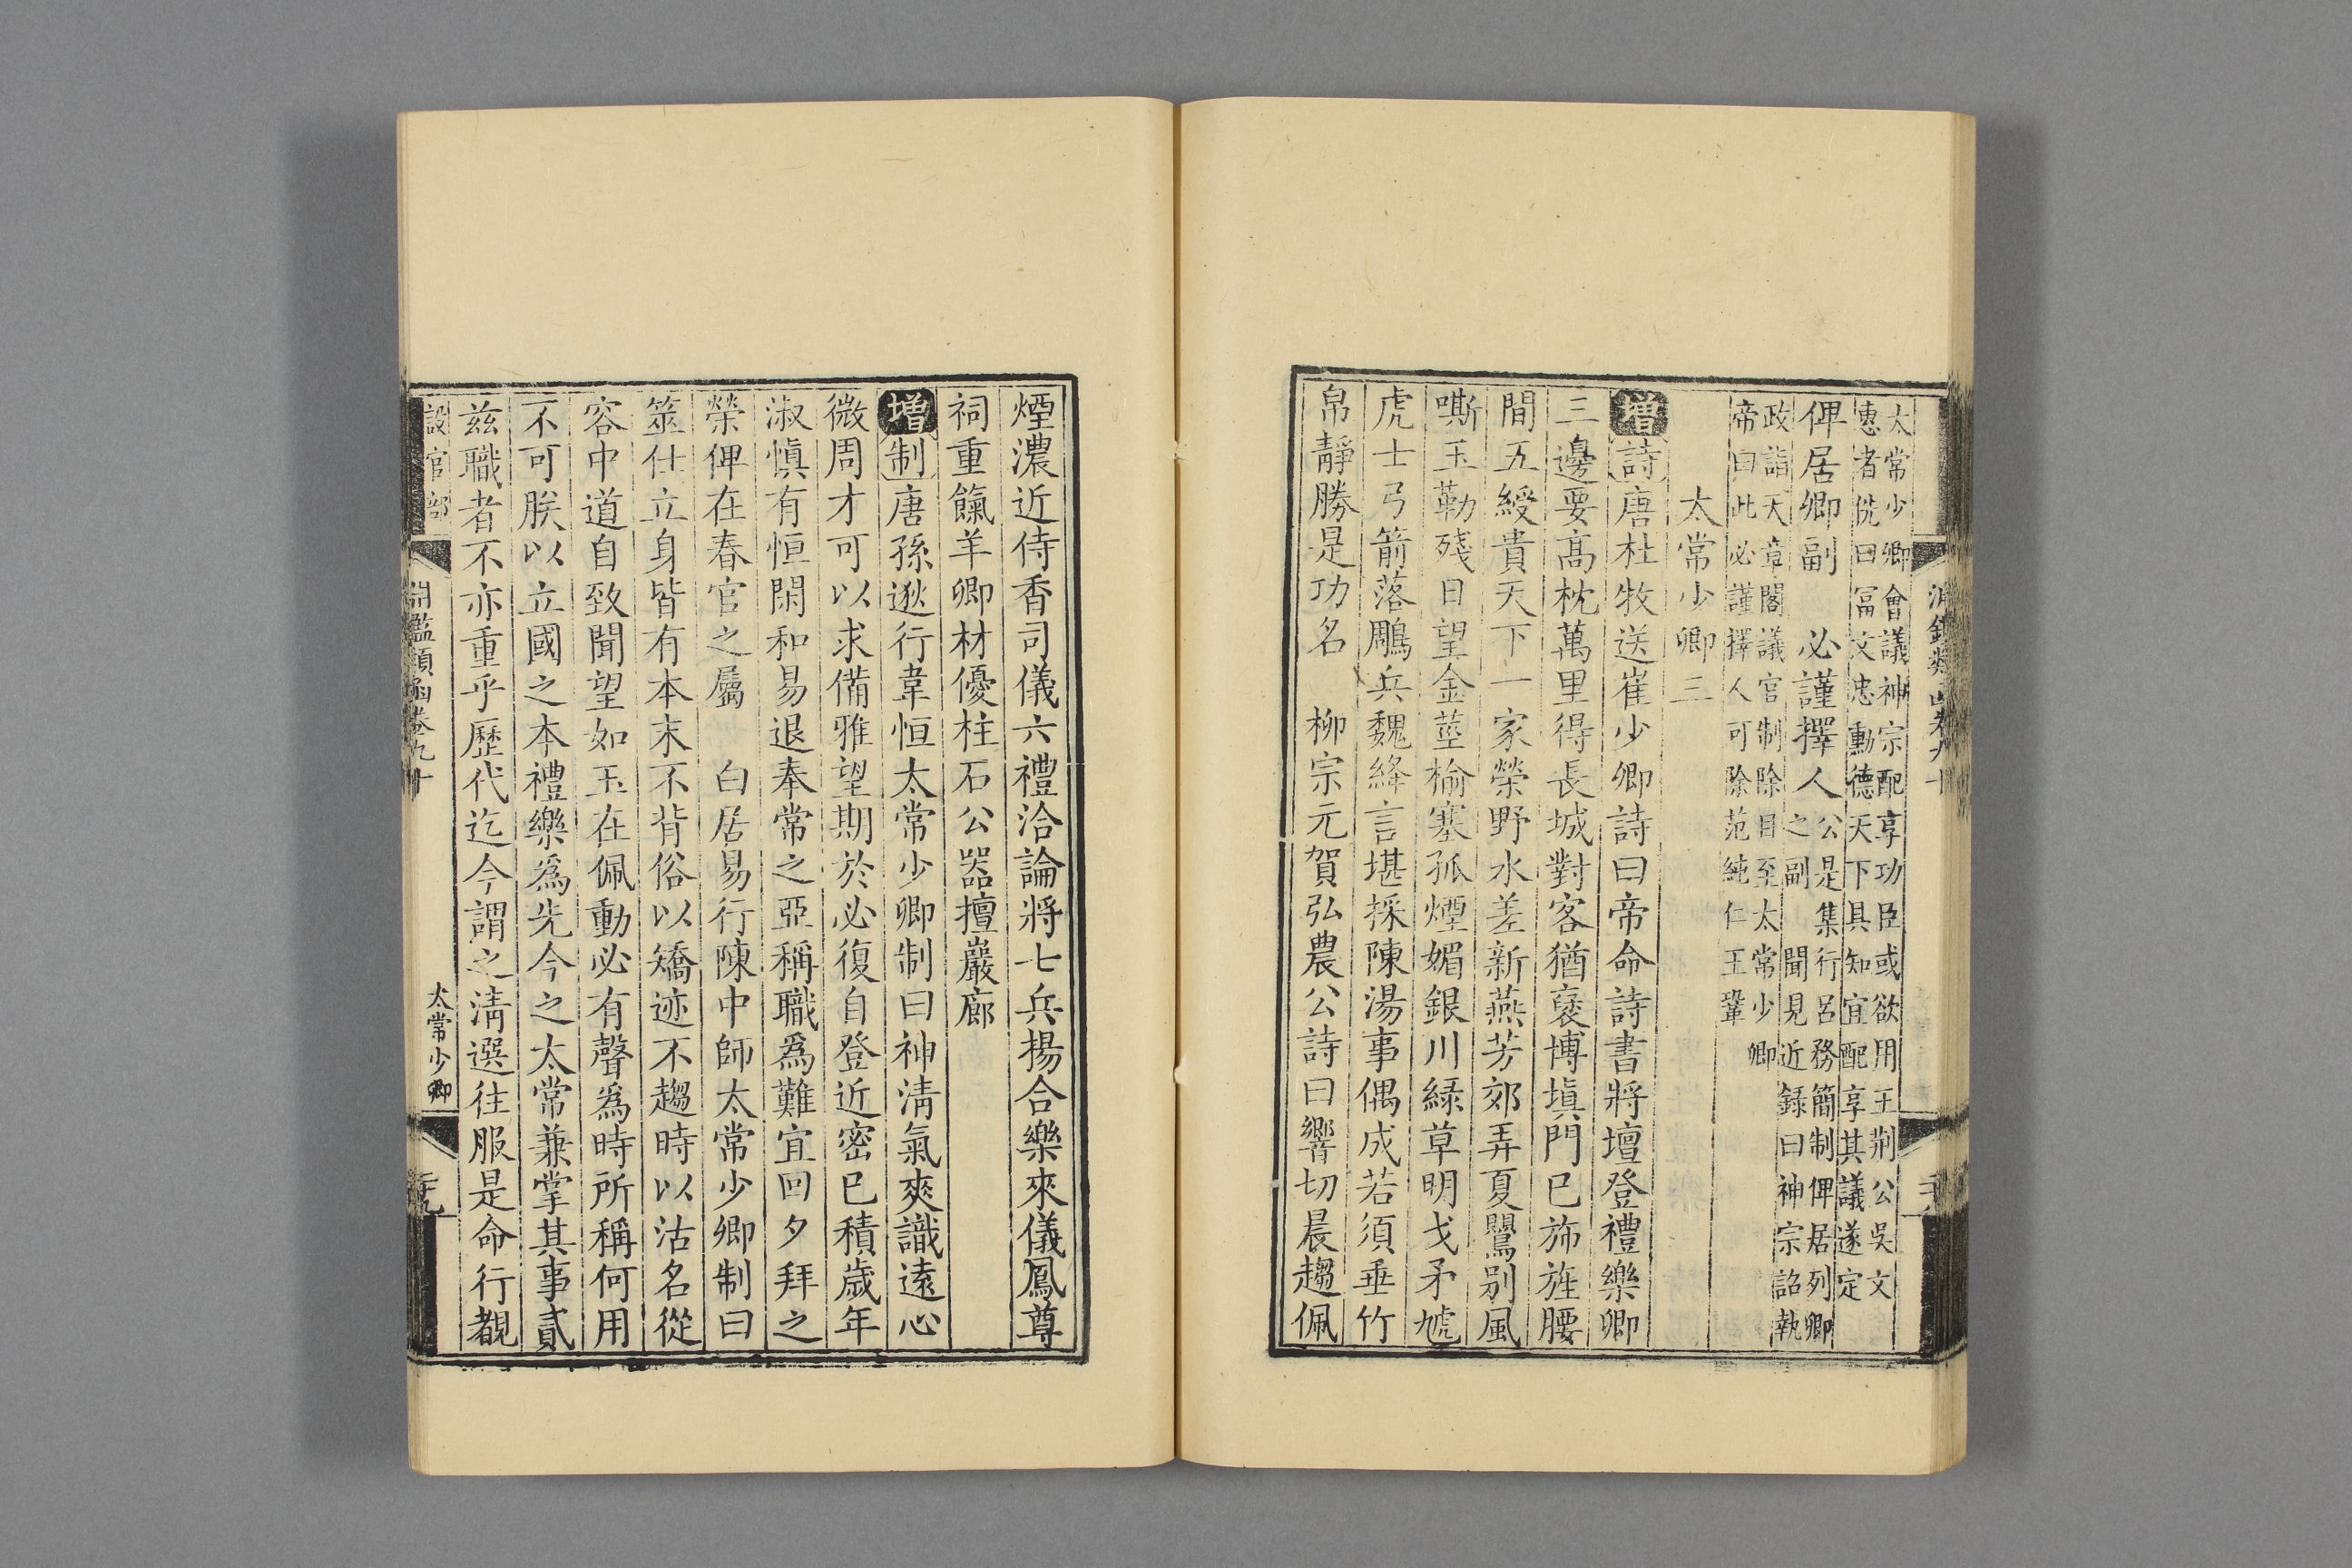 淵鑑類函卷九十
太常少卿會議神宗配享功臣或欲用王荆公吳文
惠者侁曰冨文忠勳德天下具知宜配享其議遂定
俾居卿副
公是集行呂務簡制俾居列卿
之副
必謹擇人
聞見近録曰神宗詔執
政詣天章閣議官制除目至太常少卿
帝曰此必謹擇人可除范純仁王鞏
太常少卿三
增詩唐杜牧送崔少卿詩曰帝命詩書將壇登禮樂卿
三邊要高枕萬里得長城對客猶褒博塡門已斾旌腰
間五綬貴天下一家榮野水差新燕芳郊弄夏鸎别風
嘶玉勒殘日望金莖榆塞孤煙媚銀川緑草明戈矛虓
虎士弓箭落鵰兵魏絳言堪採陳湯事偶成若須垂竹
帛靜勝是功名　柳宗元賀弘農公詩曰響切晨趨佩
煙濃近侍香司儀六禮洽論將七兵揚合樂來儀鳳尊
祠重餼羊卿材優柱石公器擅巖廊
增制唐孫逖行韋恒太常少卿制曰神淸氣爽識逺心
微周才可以求備雅望期於必復自登近密已積歲年
淑愼有恒閑和易退奉常之亞稱職爲難宜回夕拜之
榮俾在春官之屬　白居易行陳中師太常少卿制曰
筮仕立身皆有本末不背俗以矯迹不趨時以沽名從
容中道自致聞望如玉在佩動必有聲爲時所稱何用
不可朕以立國之本禮樂爲先今之太常兼掌其事貳
兹職者不亦重乎歷代迄今謂之淸選往服是命行觀
設官部
淵鑑類函卷九十
太常少卿
二十九